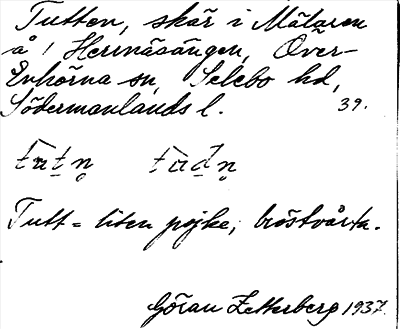 Tutten, skär i Mälaren
å / Herrnäsängen, Över-
Enhörna sn, Selebo hd,
Södermanlands l. 39.
Tutt = liten pojke; bröstvårta.
Göran Zetterberg 1937.